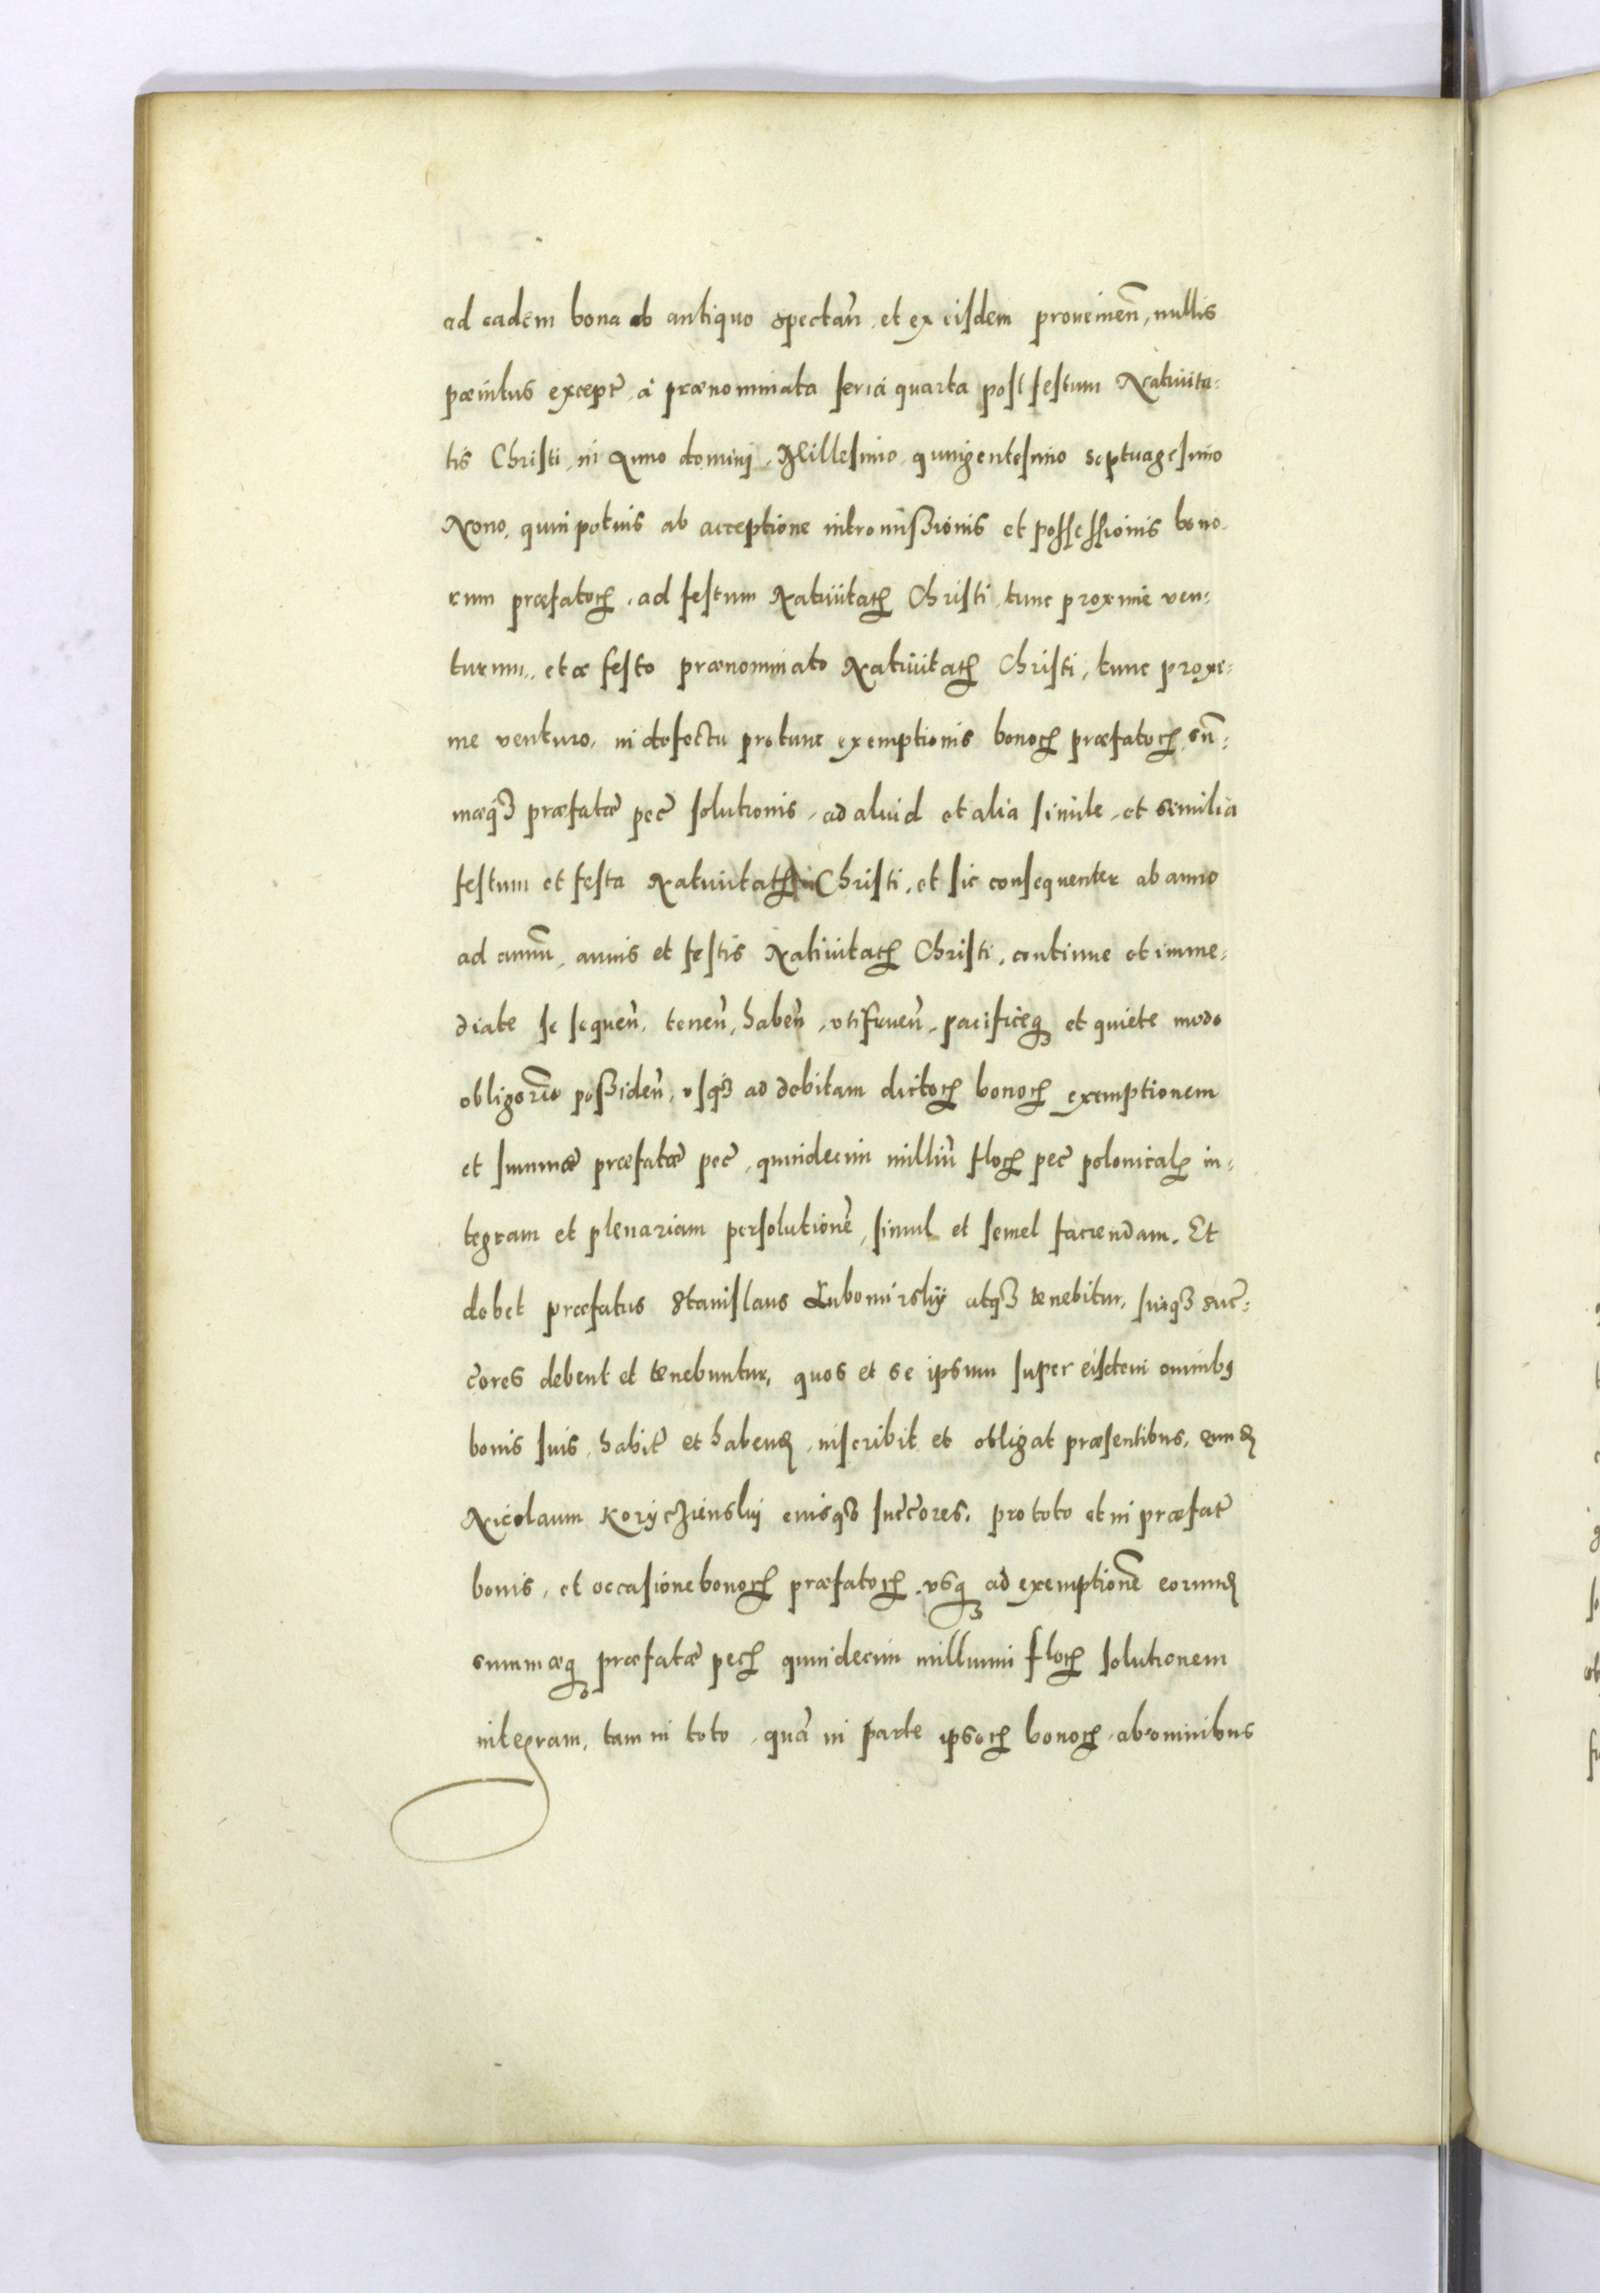 ad eadem bona ab antiquo spectan̄, et ex eisdem provenien̄, nullis
pænitus except̄, à prænominata feria quarta post festum Nativita-
tis Christi, in Anno domini, Millesimo, quingentesimo septuagesimo
Nono, quin potius ab acceptione intromissionis et possessionis bono-
rum præfatoꝝ, ad festum Nativitatꝭ Christi, tunc proxime ven-
turum, et a festo prænominato Nativitatꝭ Christi, tunc proxi-
me venturo, in defectu protunc exemptionis bonoꝝ præfatoꝝ, sum̄-
mæqꝫ præfatæ pec̄ solutionis, ad aliud et alia simile, et similia
festum et festa Nativitatꝭ Christi, et sic consequenter ab anno
ad annū, annis et festis Nativitatꝭ Christi, continue et imme-
diate se sequen̄, tenen̄, haben̄, utifruen̄, pacificeqꝫ et quiete modo
obligorio possiden̄, usqꝫ ad debitam dictoꝝ bonoꝝ exemptionem
et summæ præfatæ pec̄, quindecim milliū floꝝ pec̄ polonicalꝭ in-
tegram et plenariam persolutionē, simul et semel faciendam. Et
debet præfatus Stanislaus Lubomirsky atqꝫ tenebitur, suiqꝫ suc̄-
c̄ores debent et tenebuntur, quos et se ipsum super eisdem omnibꝰ
bonis suis, habit̄ et habenđ, inscribit et obligat præsentibus, eunđ
Nicolaum Koryczienskij eiusqꝫ succ̄ores, pro toto et in præfat̄
bonis, et occasione bonoꝝ præfatoꝝ, usqꝫ ad exemptionē eorunđ
summæqꝫ præfatæ pecꝭ quindecim millium floꝝ solutionem
integram, tam in toto, quā in parte ipsoꝝ bonoꝝ, ab omnibus